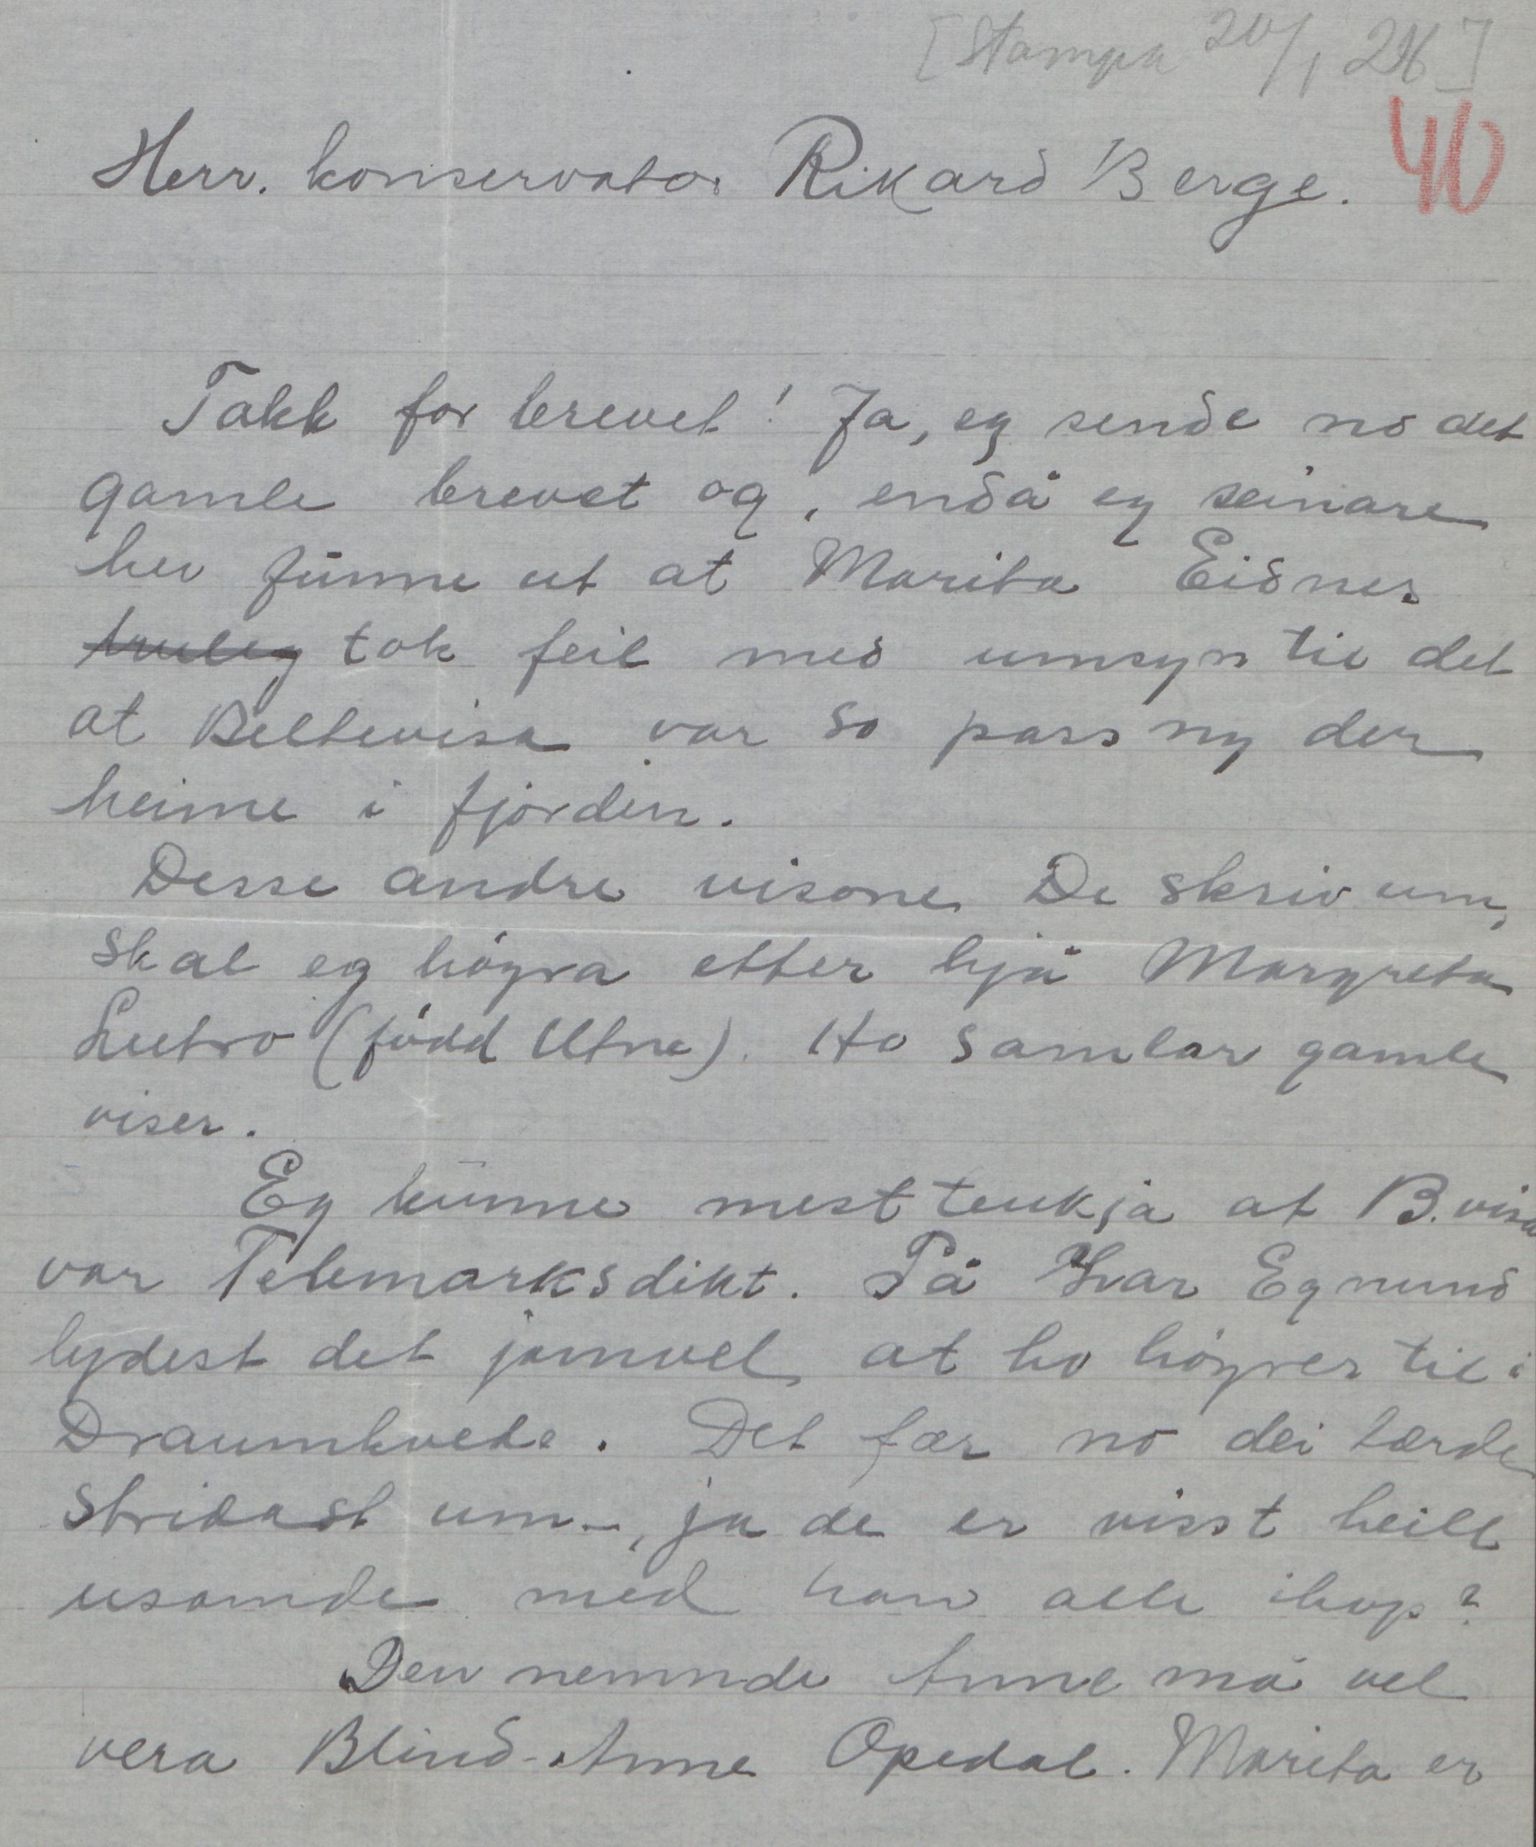 [Stampa 20/1 26]
40
Herr. konservator Rikard Berge.
Takk for brevet! Ja, eg sende no det
gamle brevet og, endå eg seinare
hev funne ut at Marita Eidnes
truleg tok feil med umsyn til det
at Beltevisa var so pass ny der
heime i fjorden.
Desse andre visone De skriv um,
skal eg höyra etter hjå Margreta
Lutro (född Utne). Ho samlar gamle
viser.
Eg kunne mest tenkja at B.visa
var Telemarksdikt. På Ivar Egnund
lydest det jamvel at ho höyrer til i
Draumkvede. Det fær no dei lærde
stridast um -, ja de er visst heilt
usamde med han alle ihop?
Den nemnde Anne må vel
vera Blind-Anne Opedal. Marita er